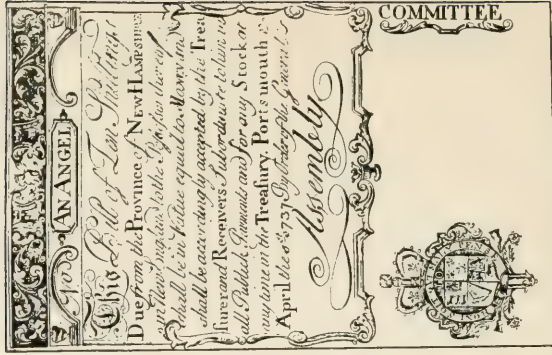 AN ANGEL
This Bill of Ten Shillings
Due from the Province of NEW HAMPSHIRE
in New England to the Possessor thereof
shall be in Value equal to
shall be accordingly accepted by the Trea
surer and Receivers Subordinate to him in
all Publick Payments and for any Stock at
any time in the Treasury. Portsmouth
April the 1737 By Order of the General
Assembly
COMMITTEE